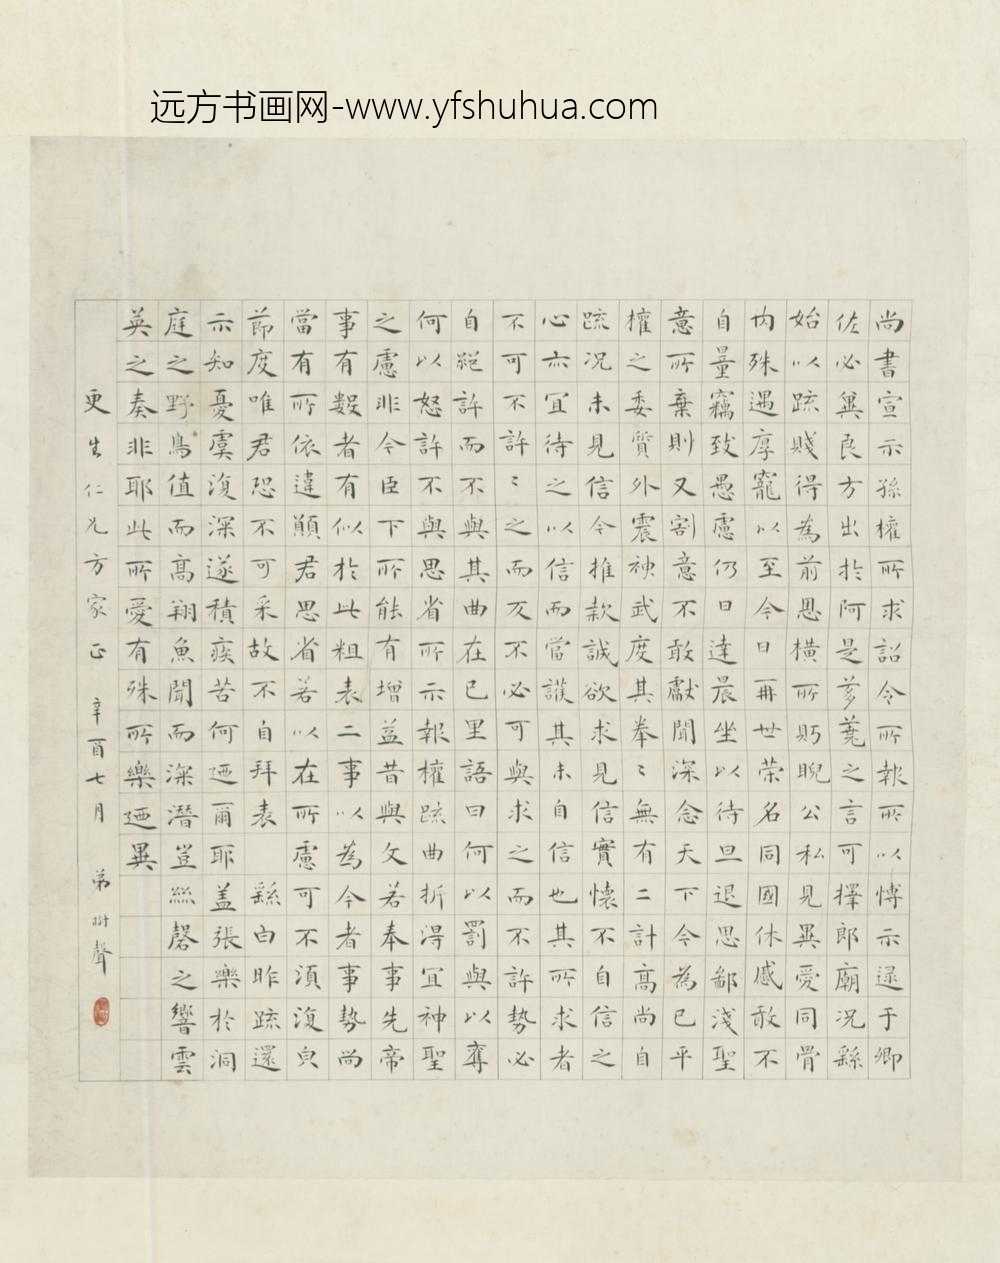 远方书画网-www.yfshuhua.com
尚書宣示孫權所求詔令所報所以博示逮于卿
佐必冀良方出於阿是芻蕘之言可擇郎廟況繇
始以疏賤得為前恩橫所眄睨公私見異愛同骨
內殊遇厚寵以至今日再世榮名同國休慼敢不
自量竊致愚慮仍日達晨坐以待旦退思鄙淺聖
意所棄則又割意不敢獻聞深念天下今為已平
權之委質外震神武度其拳〻無有二計高尚自
疏況未見信今推款誠欲求見信實懷不自信之
心亦宜待之以信而當護其未自信也其所求者
不可不許〻之而反不必可與求之而不許勢必
自絕許而不與其曲在己里語曰何以罰與以奪
何以怒許不與思省所示報權疏曲折得宜神聖
之慮非今臣下所能有增益昔與文若奉事先帝
事有數者有似於此粗表二事以為今者事勢尚
當有所依違願君思省若以在所慮可不須復皃
節度唯君恐不可采故不自拜表 繇白昨疏還
示知憂虞復深遂積疾苦何迺爾耶盖張樂於洞
庭之野鳥值而高翔魚聞而深潛豈絲磬之響雲
英之奏非耶此所愛有殊所樂迺異
更生仁兄方家正 辛酉七月 弟澍聲